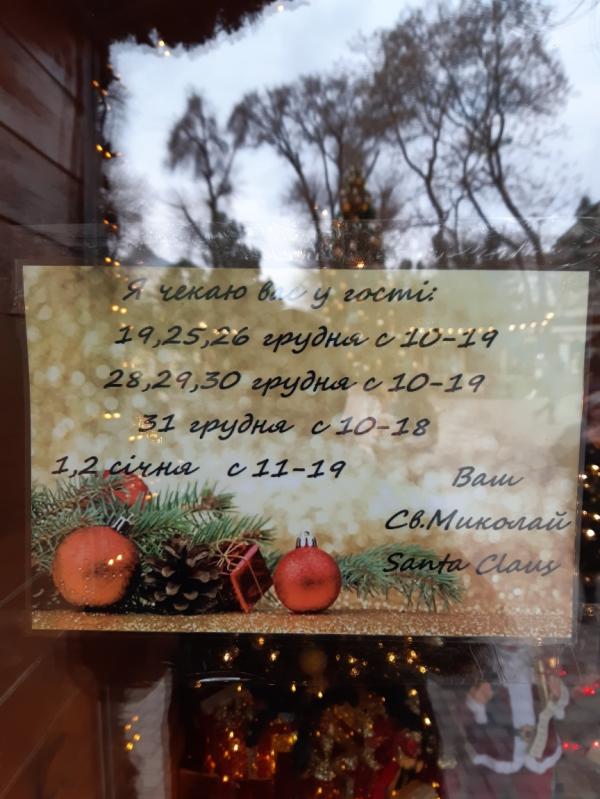 Я чекаю вас у гості:
19,25,26 грудня с 10-19
28,29,30 грудня с 10-19
31 грудня с 10-18
1,2 січня с 11-19
Ваш
Св.Миколай
Santa Claus